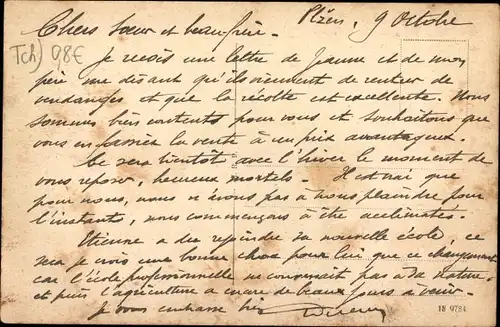 Plzen, 9 Octobre
Tch) 98€
Chers soeur et beau frère.
Je reçois une lettre de Jeanne et de mon
père me disant qu'ils viennent de rentrer de
vendanges et que la récolte est excellente. Nous
sommes bien contents pour vous et souhaitons que
vous en fassiez la vente à un prix avantageux.
Ce sera bientôt avec l'hiver le moment de
vous reposer, heureux mortels. Il est vrai que
pour nous, nous n'avons pas à nous plaindre pour
l'instants, nous commençons à être aclimatés.
Etienne a du rejoindre sa nouvelle école, ce
sera je crois une bonne chose pour lui que ce changement
car l'école professionnelle ne convenait pas à sa nature
et puis l'agriculture a encore de beaux jours à venir.
Je vous embrasse bien
18 9784